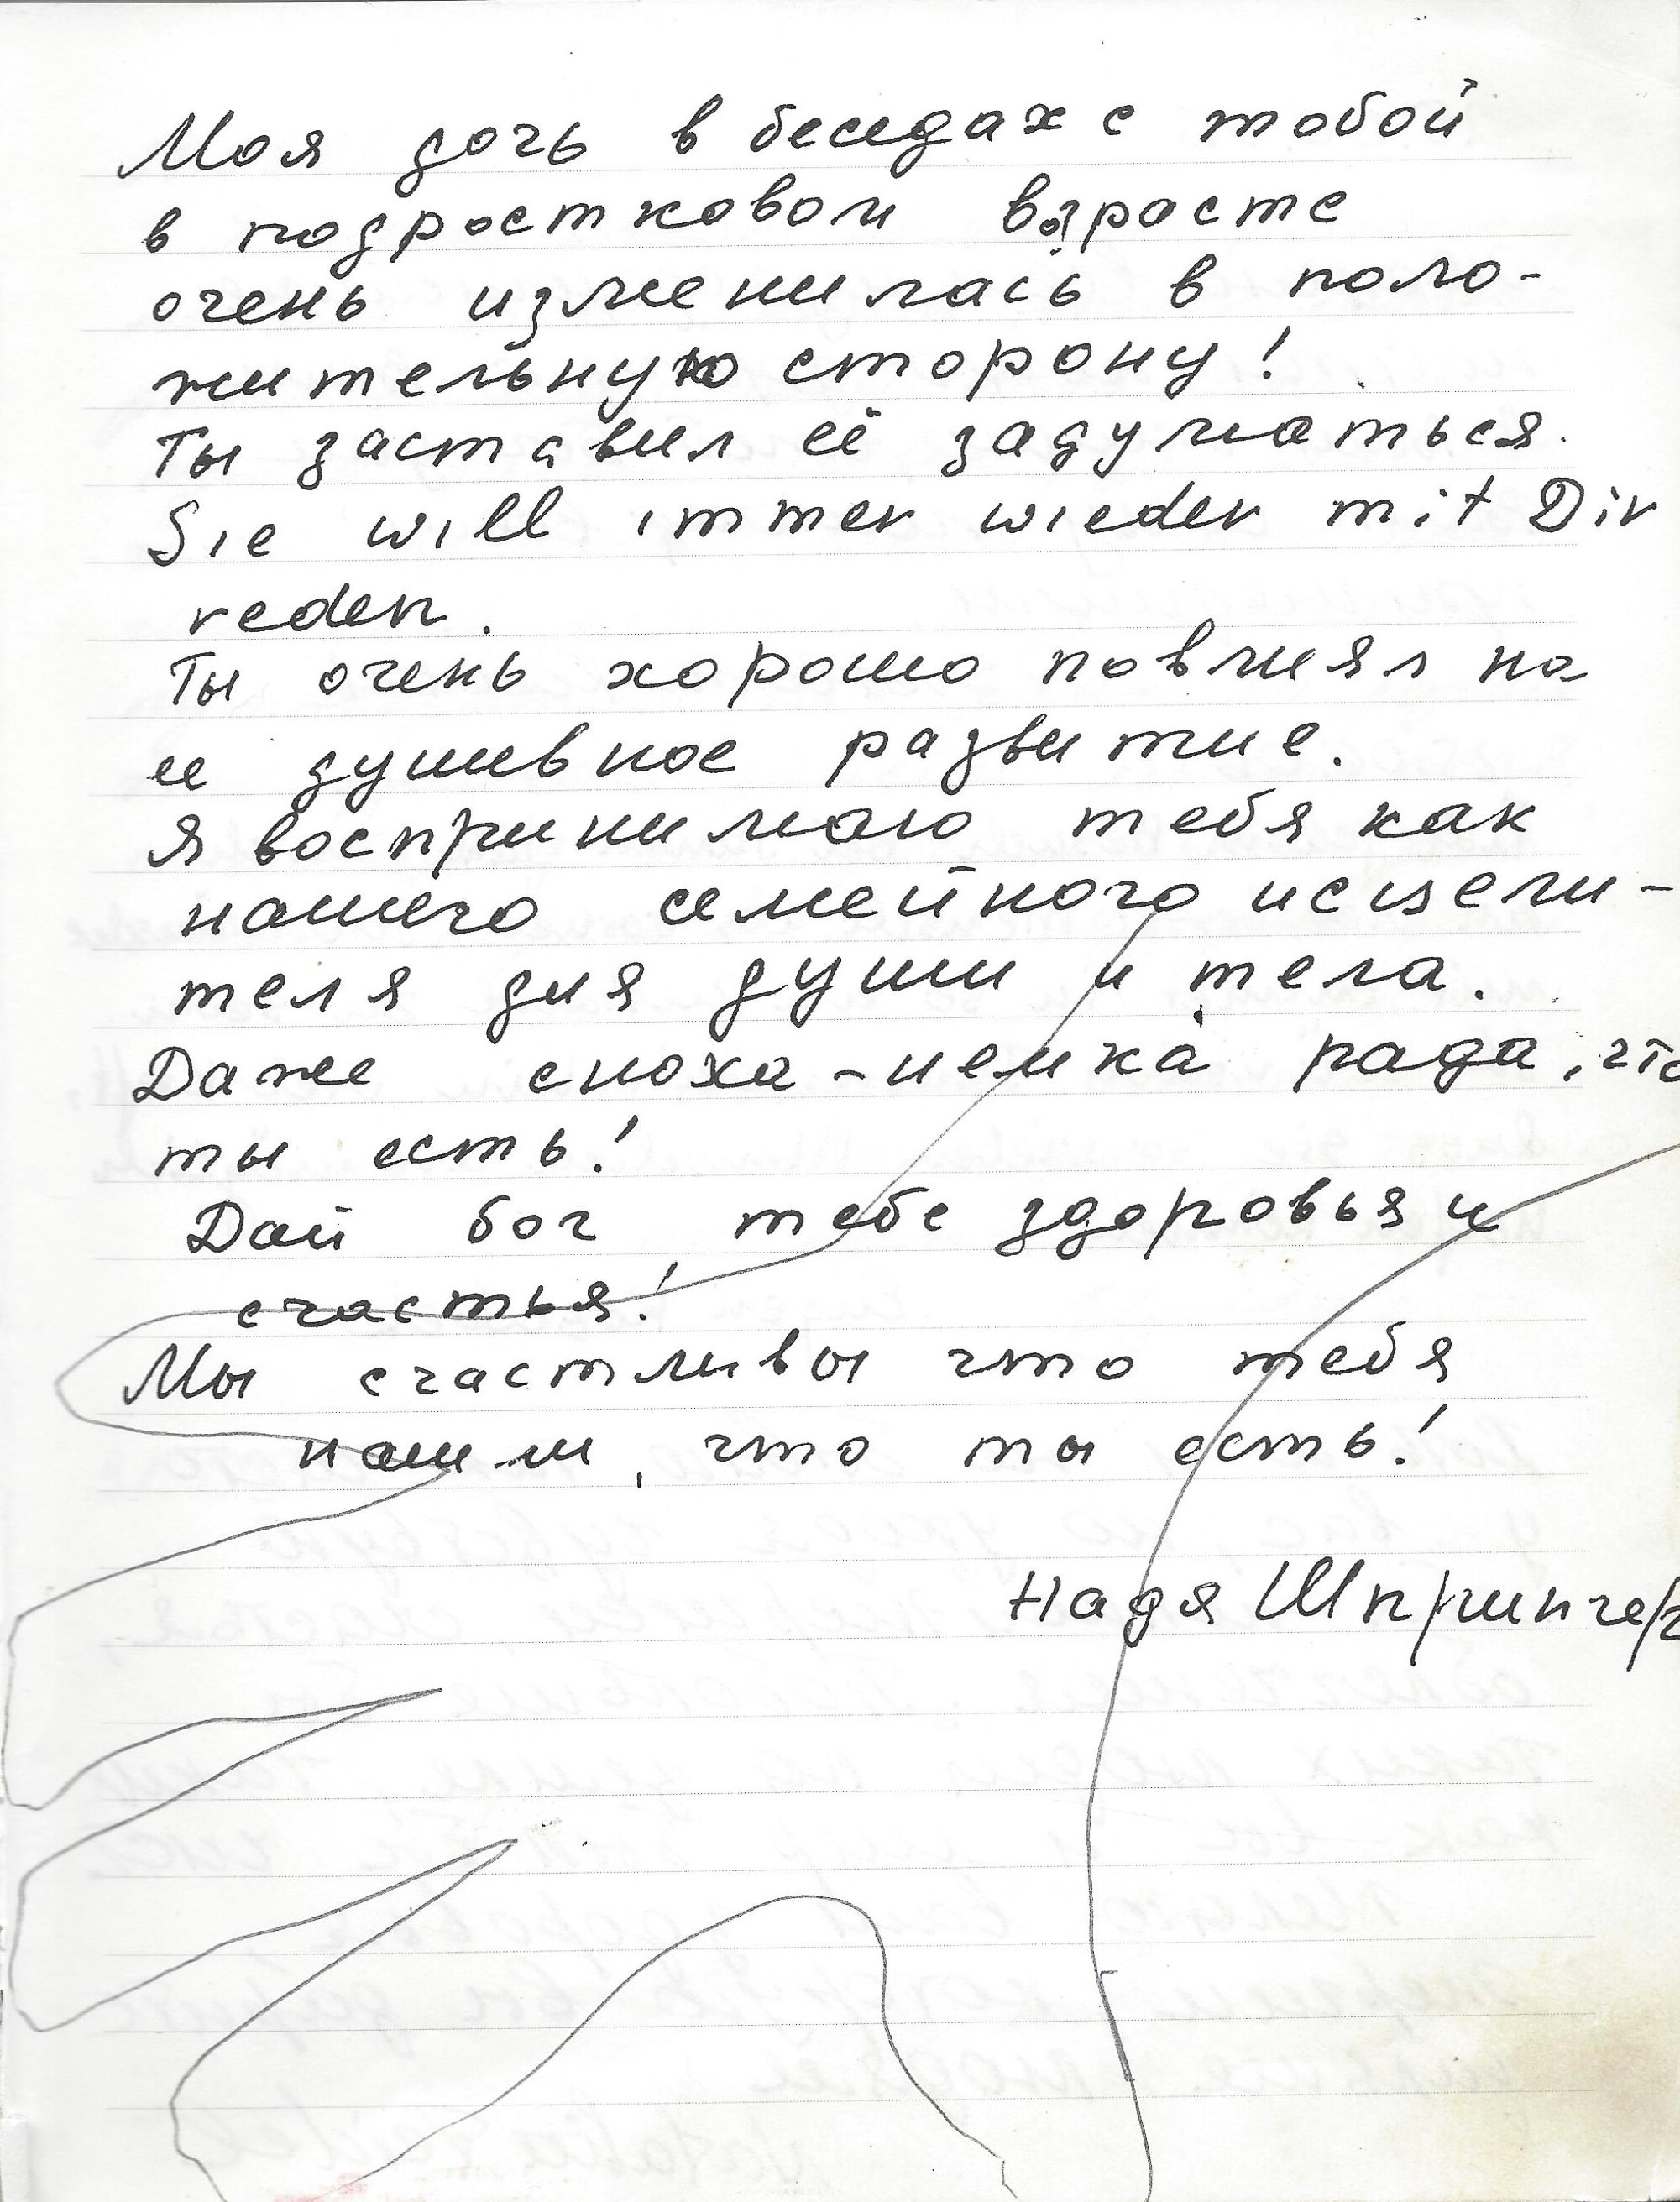 Моя дочь в беседах с тобой
в подростковом возрасте
очень изменилась в поло-
жительную сторону!
Ты заставил её задуматься.
Sie will immer wieder mit Dir
reden.
Ты очень хорошо повлиял на
ее душевное развитие.
Я воспринимаю тебя как
нашего семейного исцели-
теля для души и тела.
Даже сноха-немка рада, что
ты есть!
Дай бог тебе здоровья и
счастья!
Мы счастливы что тебя
нашли, что ты есть!
Надя Шпрингер